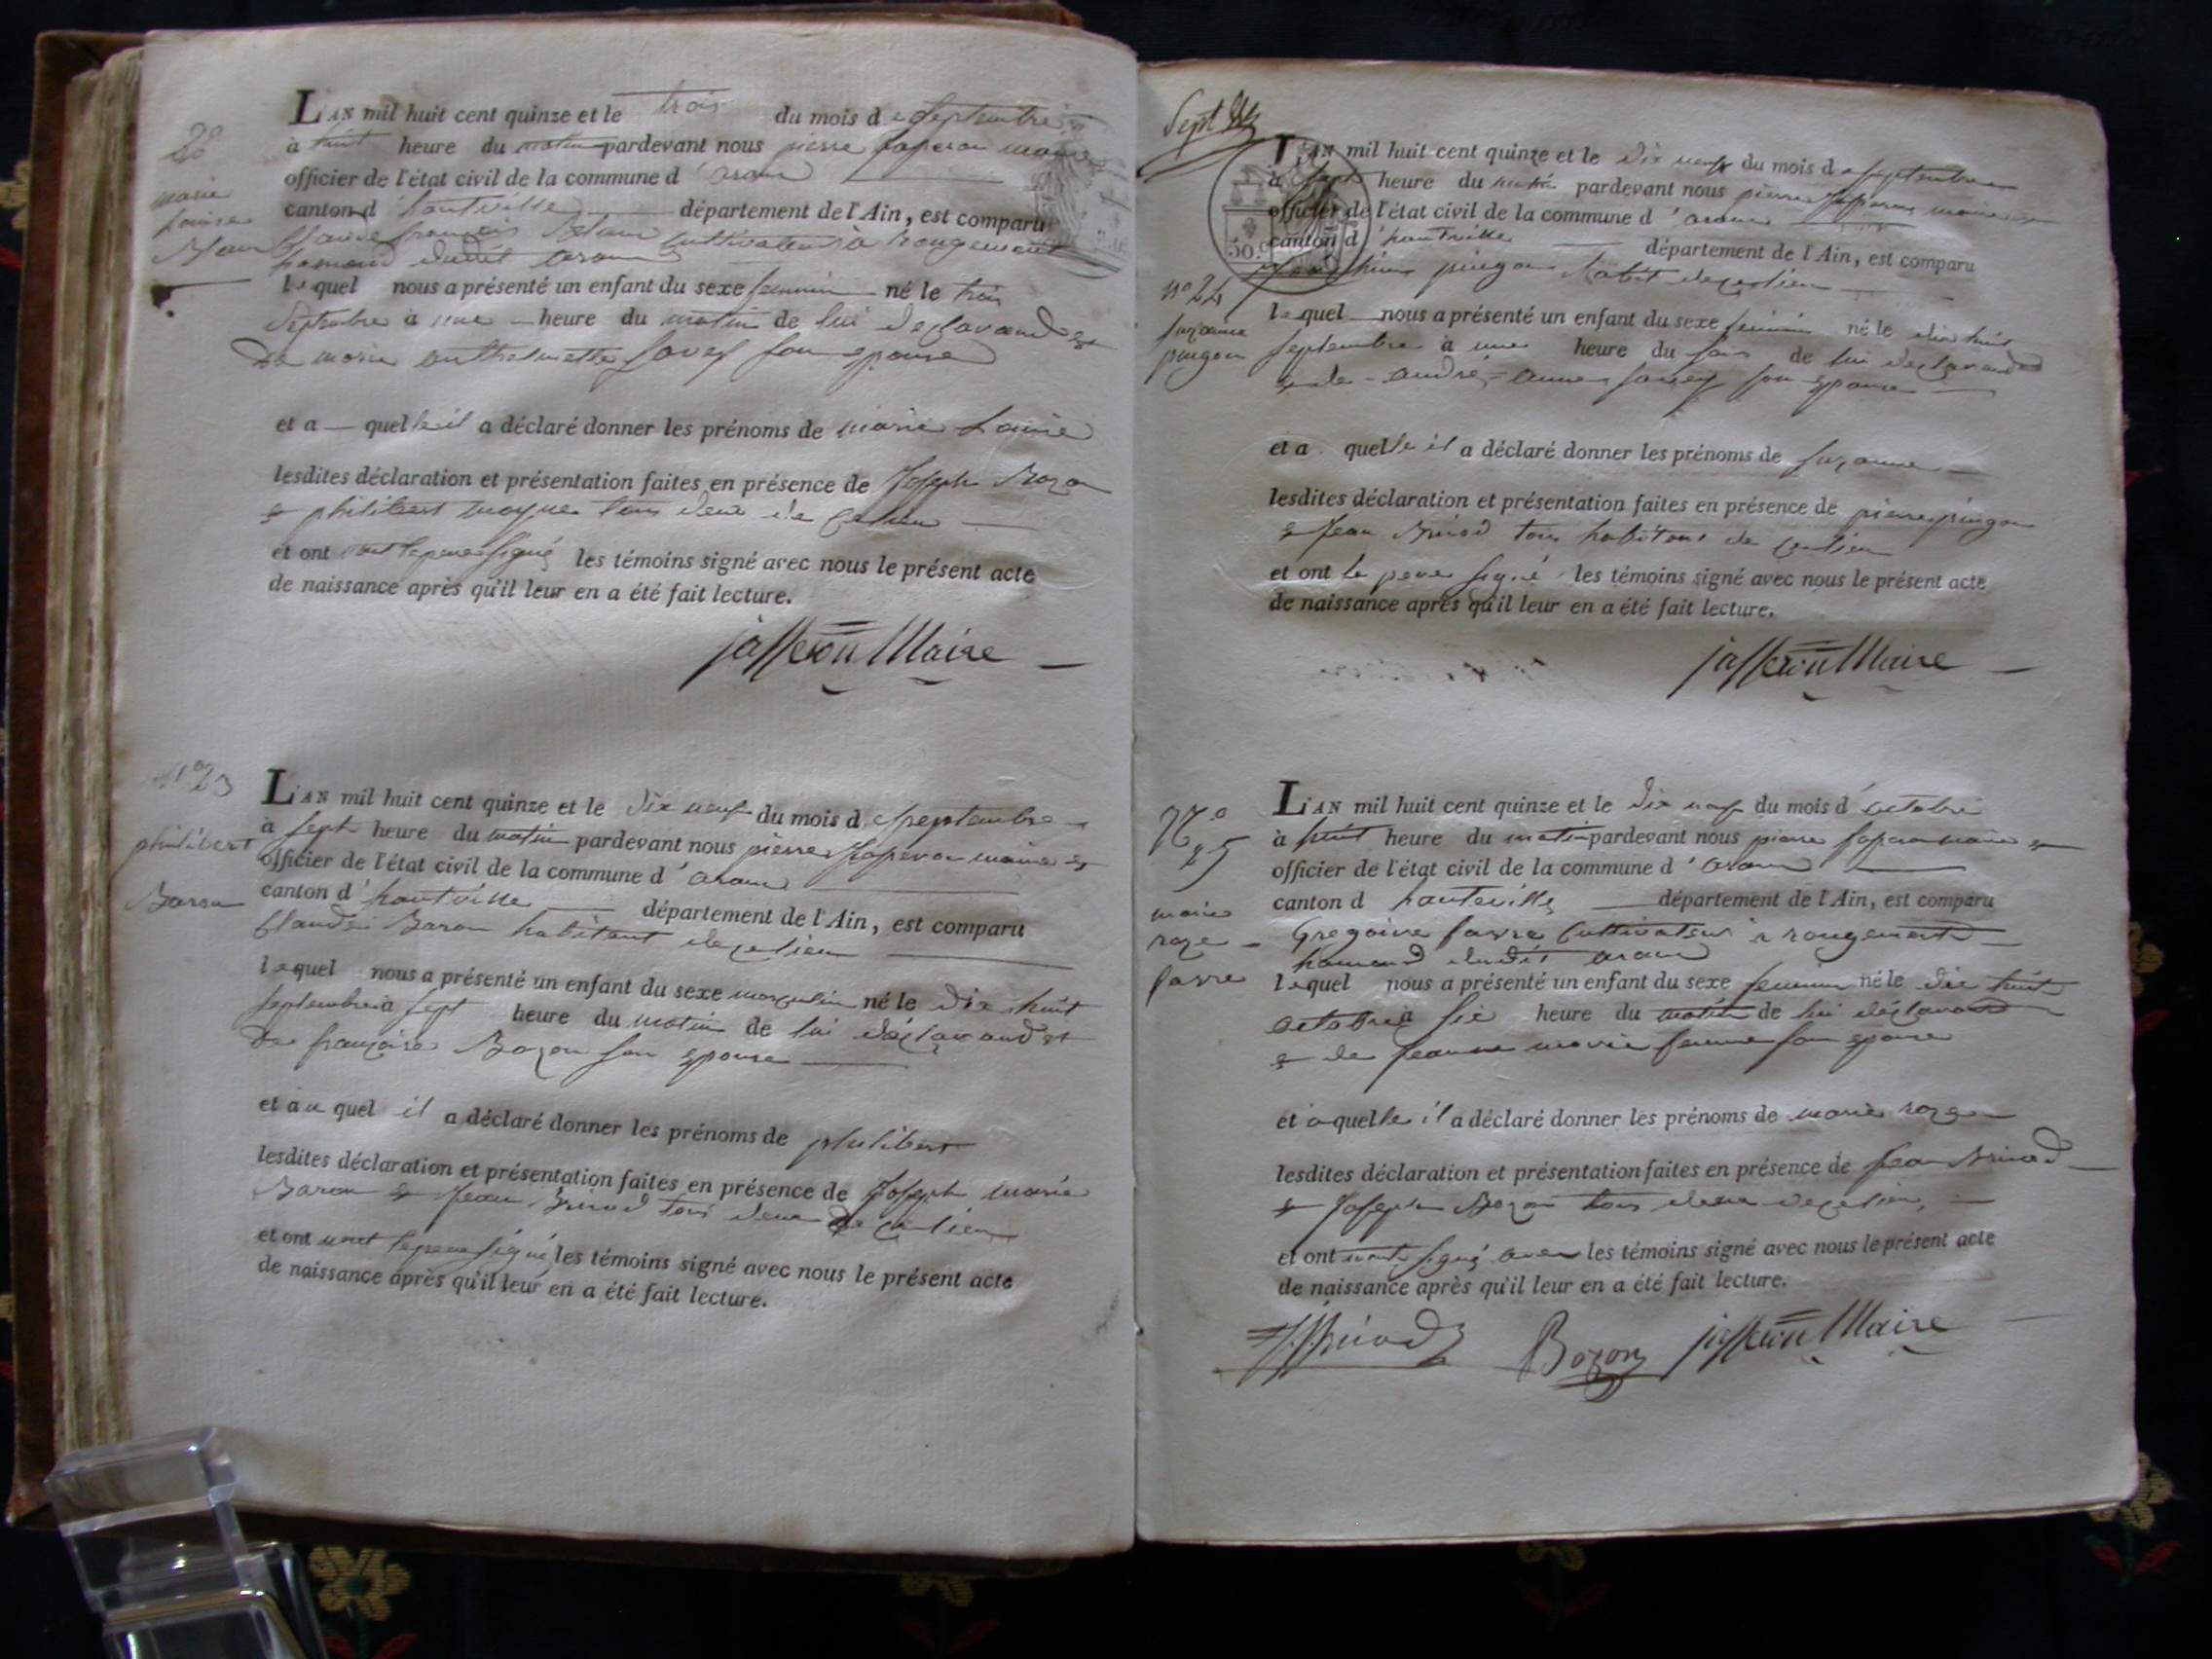 28
marie
Louise
L'AN mil huit cent quinze et le trois du mois de Septembre
à huit heure du matin pardevant nous pierre Jaseron maire
officier de l'état civil de la commune d'aranc
canton d'hauteville département de l'Ain, est comparu
françois cultivateur à rougemont
hameau dudit aranc
lequel nous a présenté un enfant du sexe feminin né le trois
Septembre à une heure du matin de lui déclarand et
de marie anthelmette Savey son epouse
et a quelle il a déclaré donner les prénoms de marie Louise
lesdites déclaration et présentation faites en présence de Joseph Bozon
& philibert tous deux de ce lieu
et ont les témoins signé avec nous le présent acte
de naissance après qu'il leur en a été fait lecture.
jasseron Maire
n° 23
philibert
Baron
L'AN mil huit cent quinze et le Dix neuf du mois de septembre
à sept heure du matin pardevant nous pierre Jaseron maire &
officier de l'état civil de la commune d'aranc
canton d'hauteville département de l'Ain, est comparu
Claude Baron habitant de ce lieu
lequel nous a présenté un enfant du sexe masculin né le dix huit
septembre à sept heure du matin de lui déclarand et
de françoise Bozon son epouse
et au quel il a déclaré donner les prénoms de philibert
lesdites déclaration et présentation faites en présence de Joseph marie
Baron & Jean Brinod tous deux de ce lieu
et ont les témoins signé avec nous le présent acte
de naissance après qu'il leur en a été fait lecture.
50.
n° 24
suzanne
pingon
L'AN mil huit cent quinze et le Dix neuf du mois de septembre
à sept heure du matin pardevant nous pierre Jaseron maire &
officier de l'état civil de la commune d'aranc
canton d'hauteville département de l'Ain, est comparu
pingon habit de ce lieu
lequel nous a présenté un enfant du sexe feminin né le dix huit
septembre à une heure du soir de lui declarand
& de andré-anne savey son epouse
et a quelle il a déclaré donner les prénoms de suzanne
lesdites déclaration et présentation faites en présence de pierre pingon
& Jean Brinod tous habitans de ce lieu
et ont le pere signé les témoins signé avec nous le présent acte
de naissance après qu'il leur en a été fait lecture.
jasseron Maire
N° 25
marie
roze
favre
L'AN mil huit cent quinze et le Dix neuf du mois d'octobre
à huit heure du matin pardevant nous pierre Jaseron maire &
officier de l'état civil de la commune d'aranc
canton d hauteville département de l'Ain, est comparu
Gregoire favre Cultivateur à rougemont
hameaud dudit aranc
lequel nous a présenté un enfant du sexe feminin né le dix huit
octobre à six heure du matin de lui déclarand
& de Jeanne marie son epouse
et a quelle il a déclaré donner les prénoms de marie roze
lesdites déclaration et présentation faites en présence de Jean Brinod
& Joseph Bozon tous deux de ce lieu,
et ont signé avec les témoins signé avec nous le présent acte
de naissance après qu'il leur en a été fait lecture.
Brinod Bozon jasseron Maire